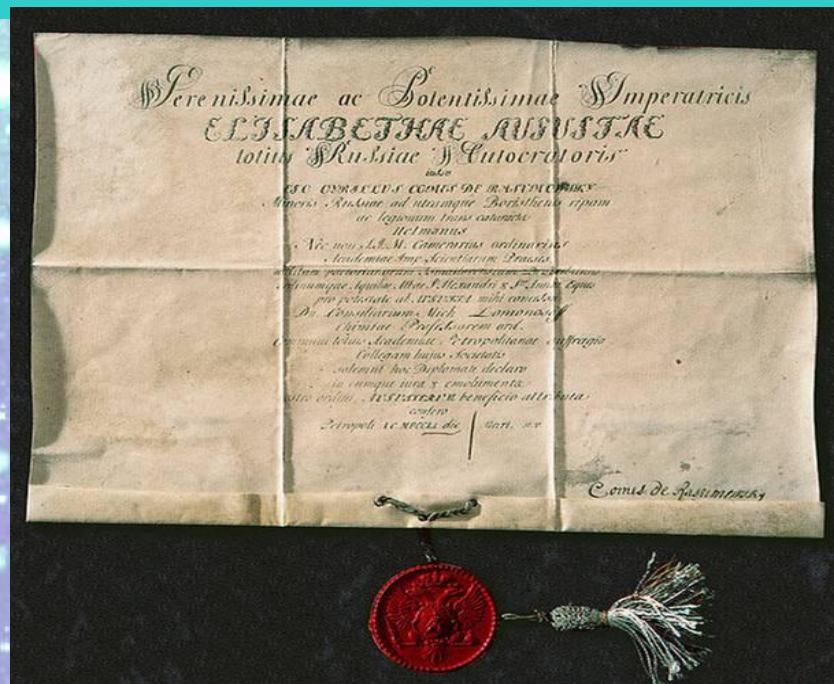 Serenissimae ac Potentissimae Imperatricis
ELISABETHAE AUGUSTAE
totius Russiae Autocratoris
iussu
EGO CYRILLUS COMES DE RASUMOWSKY
Minoris Russiae ad utramque Boristhenis ripam
ac legionum trans cataracta
Hetmanus
Nec non S.I.M. Camerarius ordinarius
Academiae Imp. Scientiarum Praeses
Aquilae Albae S. Alexandri & S. Annae Eques
pro potestate ab AUGUSTA mihi concessa
Dn. Consiliarium Mich. Lomonosoff
Chimiae Professorem ord.
communi totius Academiae Petropolitanae suffragio
Collegam hujus Societatis
solemni hoc Diplomate declaro
in eumque iura & emolumenta
ordini AUGUSTARUM beneficio attributa
confero
Petropoli die
Comes de Rasumowsky